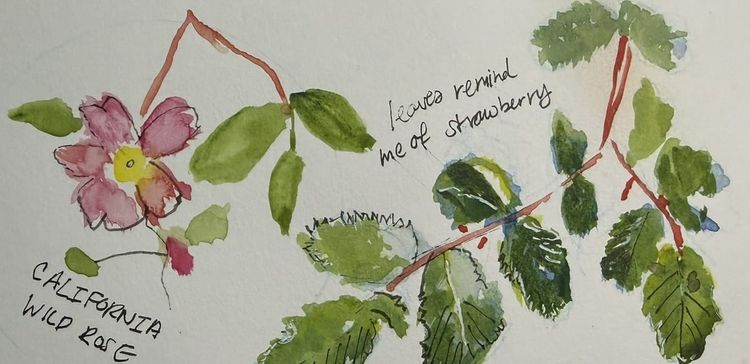 leaves remind
me of strawberry
CALIFORNIA
WILD ROSE